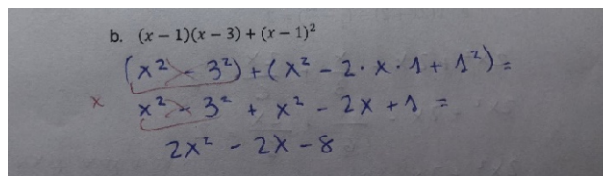 b. (x – 1)(x – 3) + (x – 1)²
(x² - 3²) + (x² - 2 · x · 1 + 1²) =
x x² - 3² + x² - 2x + 1 =
2x² - 2x - 8